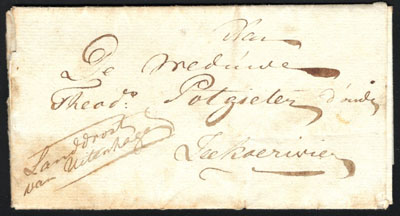 Aan
De Weduwe
Theods. Potgieter d'oude
Zeekoerivier
Landdrost
van Uitenhage